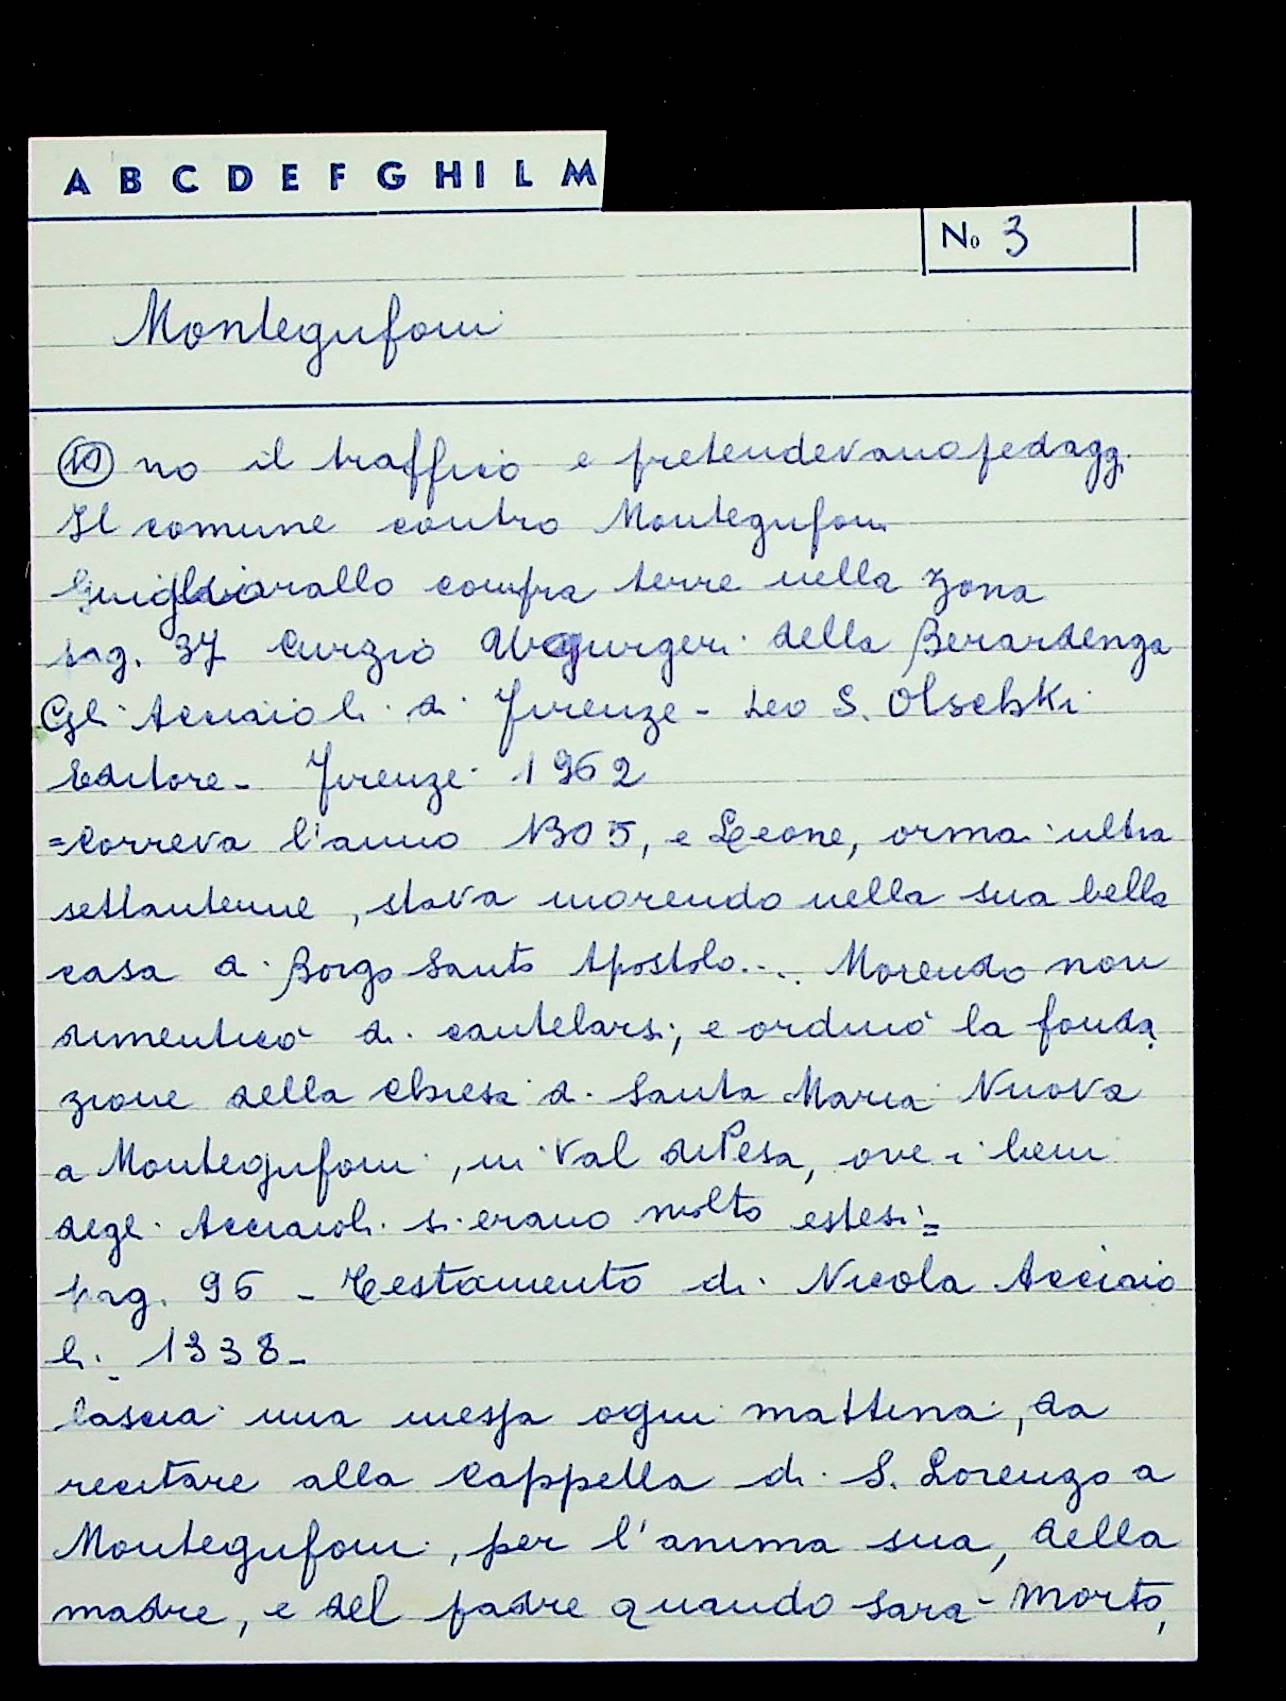 A B C D E F G H I L M
No 3
Montegufoni
10 no il traffico e pretendevano pedagg.
Il comune contro Montegufoni
compra terre nella zona
pag. 37 Curzio Ugurgeri della Berardenga
Gli Acciaioli di Firenze - Leo S. Olschki
Editore - Firenze 1962
=Correva l'anno 1305, e Leone, ormai ultra
settantenne, stava morendo nella sua bella
casa di Borgo Santo Apostolo... Morendo non
dimenticò di cautelarsi; e ordinò la fonda
zione della Chiesa di Santa Maria Nuova
a Montegufoni, in Val di Pesa, ove i beni
degli Acciaioli si erano molto estesi=
pag. 96 - Testamento di Nicola Acciaio
li. 1338-
lascia una messa ogni mattina, da
recitare alla Cappella di S. Lorenzo a
Montegufoni, per l'anima sua, della
madre, e del padre quando sarà morto,